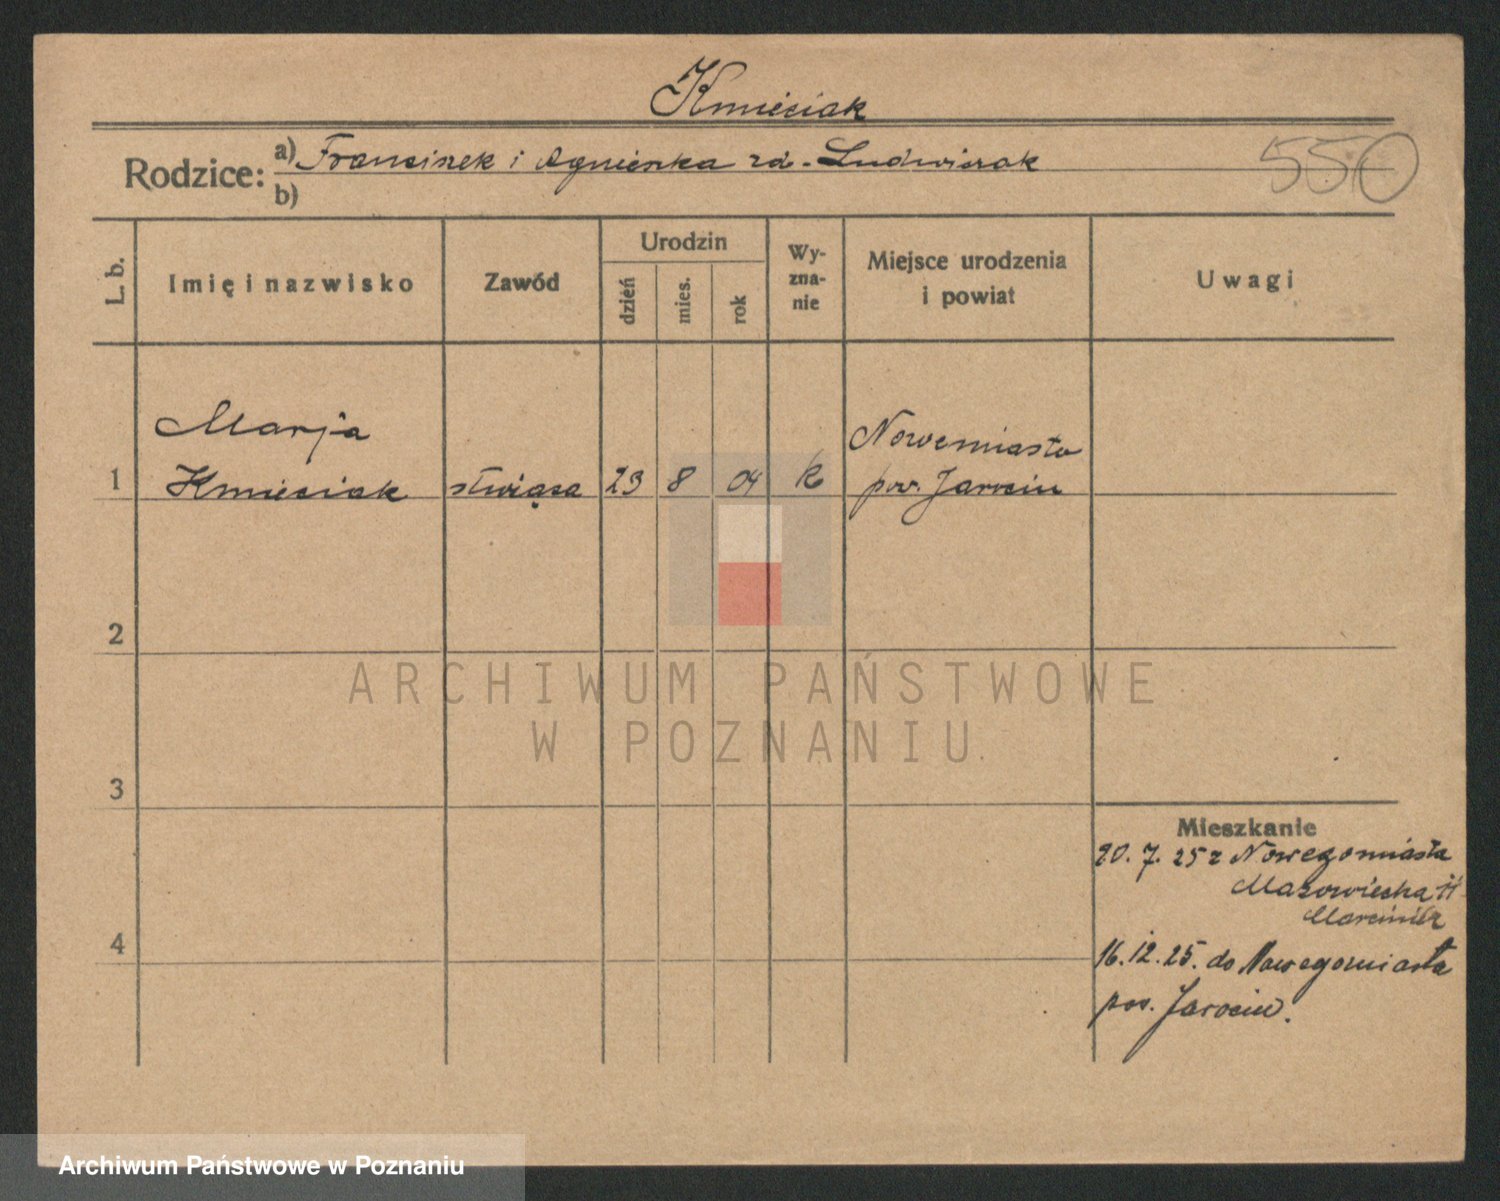 Kmieciak
Rodzice: a) Franciszek i Agnieszka zd. Ludwiczak
b)
550
L. b.
Imię i nazwisko
Zawód
Urodzin
dzień
mies.
rok
Wy-
zna-
nie
Miejsce urodzenia
i powiat
Uwagi
Marja
1 Kmieciak służąca 23 8 04 k
Nowemiasto
pow. Jarocin
2
3
4
ARCHIWUM PAŃSTWOWE
W POZNANIU
Mieszkanie
20. 7. 25 z Nowegomiasta
Mazowiecka
16. 12. 25. do Nowegomiasta
pow. Jarocin.
Archiwum Państwowe w Poznaniu